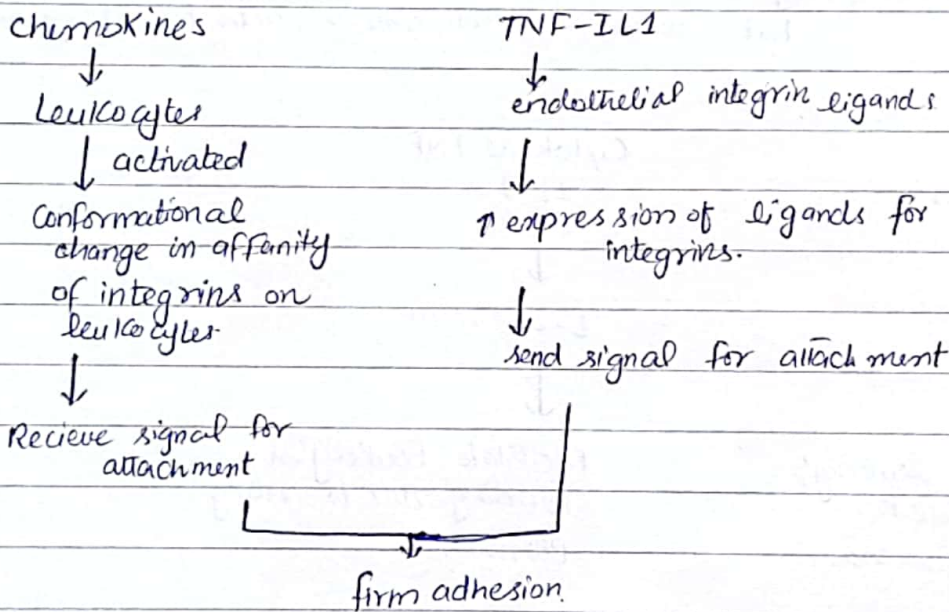 Chemokines
Leukocytes
activated
Conformational
change in affanity
of integrins on
leukocytes.
Recieve signal for
attachment
TNF-IL1
endothelial integrin ligands
↑ expression of ligands for
integrins.
send signal for attachment
firm adhesion.